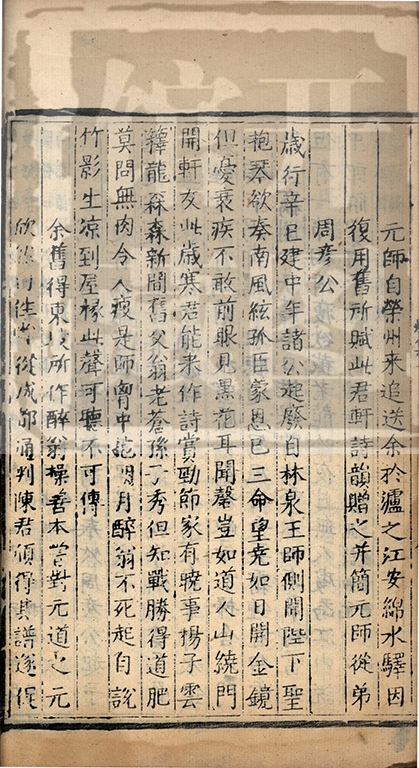 元師自榮州來追送余於瀘之江安綿水驛因
復用舊所賦此君軒詩韻贈之并簡元師從弟
周彦公
歲行辛巳建中年諸公起廢自林泉王師側聞陛下聖
抱琴欲奏南風絃孤臣蒙恩已三命望堯如日開金鏡
但憂衰疾不敢前眼見黑花耳聞磬豈如道人山繞門
開軒友此歲寒君能來作詩賞勁節家有曉事揚子雲
籜龍森森新間舊父翁老蒼孫子秀但知戰勝得道肥
莫問無肉令人瘦是師胷中抱明月醉翁不死起自說
竹影生凉到屋椽此聲可聽不可傳
余舊得東坡所作醉翁操善本嘗對元道之元
欣然曰往當從成都通判陳君頎得其譜遂促